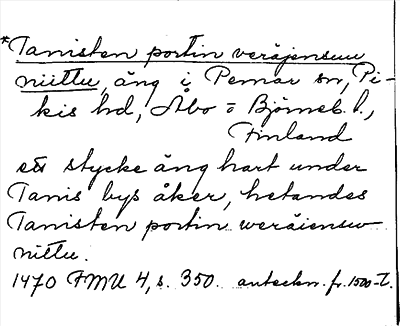 *Tanisten portin veräjensuu
niittu, äng i Pemar sn, Pi-
kis hd, Åbo o Björneb. l.,
Finland
ett stycke äng hart under
Tanis bys åker, hetandes
Tanisten portin weräiensw
nittu.
1470 FMU 4, s. 350. anteckn. fr. 1500-t.